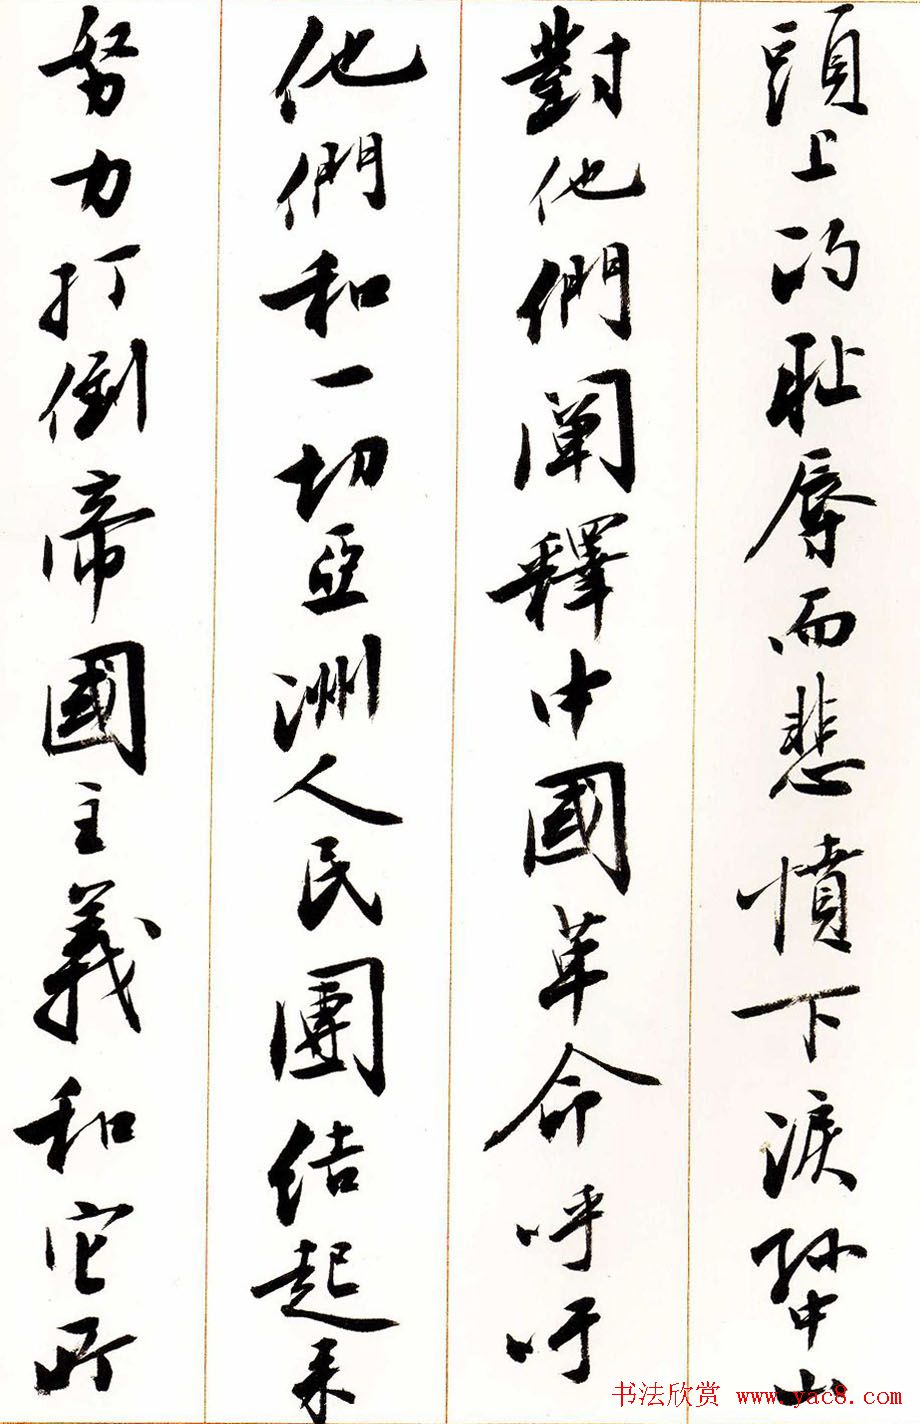 頭上的恥辱而悲憤下淚孫中山
對他們闡釋中國革命呼吁
他們和一切亞洲人民團结起来
努力打倒帝國主義和它所
书法欣赏 www.yac8.com